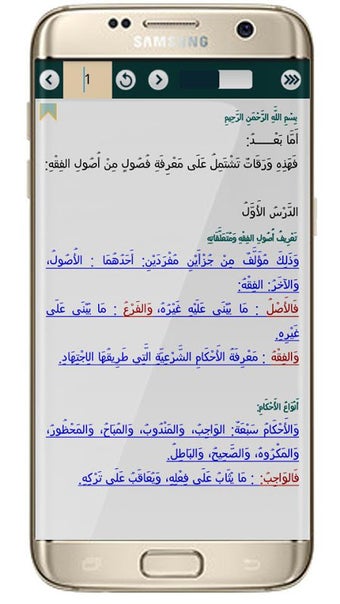 SAMSUNG
1
بِسْمِ اللَّهِ الرَّحْمَنِ الرَّحِيمِ
أَمَّا بَعْـــــدُ:
فَهَذِهِ وَرَقَاتٌ تَشْتَمِلُ عَلَى مَعْرِفَةِ فُصُولٍ مِنْ أُصُولِ الفِقْهِ:
الدَّرْسُ الأَوَّلُ
تَعْرِيفُ أُصُولِ الفِقْهِ وَمُتَعَلَّقَاتِهِ
وَذَلِكَ مُؤَلَّفٌ مِنْ جُزْأَيْنِ مُفْرَدَيْنِ: أَحَدُهُمَا : الأُصُولُ،
وَالآخَرُ: الفِقْهُ:
فَالأَصْلُ : مَا يُبْنَى عَلَيْهِ غَيْرُهُ، وَالفَرْعُ : مَا يُبْنَى عَلَى
غَيْرِهِ.
وَالفِقْهُ : مَعْرِفَةُ الأَحْكَامِ الشَّرْعِيَّةِ الَّتِي طَرِيقُهَا الاِجْتِهَادُ.
أَنْوَاعُ الأَحْكَامِ:
وَالأَحْكَامُ سَبْعَةٌ: الوَاجِبُ، وَالمَنْدُوبُ، وَالمُبَاحُ، وَالمَحْظُورُ،
وَالمَكْرُوهُ، وَالصَّحِيحُ، وَالبَاطِلُ.
فَالوَاجِبُ: : مَا يُثَابُ عَلَى فِعْلِهِ، وَيُعَاقَبُ عَلَى تَرْكِهِ.